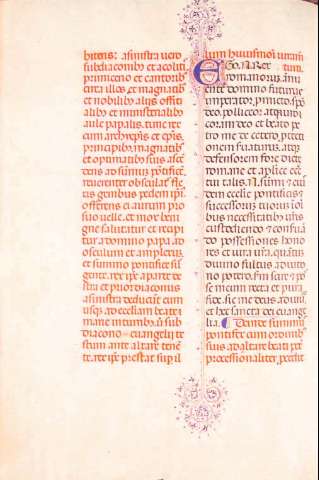 bitens: a sinistra vero
subdiaconibus et acolitis
primicerio et cantoribus
circa illos et magnatib
et nobilib aliis offiti
alibus et ministerialib
aule papalis. tunc rex
cum archiepis et epis.
principib. magnatib
et optimatib suis ascē
dens ad summū pontificē
reverenter obsculat fle
xis genibus pedem ipi
offerens ei aurum pro
suo velle. et mox beni
gne salutatur et recipi
tur a domino papa ad
osculum et amplexus.
et summo pontifice sur
gente. rex ipe a parte dex
tra et prior diaconus
a sinistra deducunt eum
usque ad ecclesiam beate
marie in turribus ubi sub
diacono evangelii tex
tum ante altare tenē
te. rex ipe prestat sup il
lum huiusmodi iuram
tum.
Ego. N. Rex
romanorus. annu
ente domino futurus
imperator. promitto. spō
deo. polliceor. atqui iu
ro. coram deo et beato pe
tro me de cetero. protecti
onem fuiturus. atque
defensorem fore dicte
romane et aplice eccl
tui talis. N. summi
dem ecclie pontificis
successorus tuorus in
bus necessitatib uns
custodiendo et confuā
do possessiones hono
res et iura ura. quatus
divino fultus adiuto
rio potero. sm scire et po
se meum recta et pura
fide. sic me deus adiuvet
et hec sancta dei euange
lia. Deinde summus
pontifex cum ordinib
suis ad altare beati pet
processionaliter. prectit